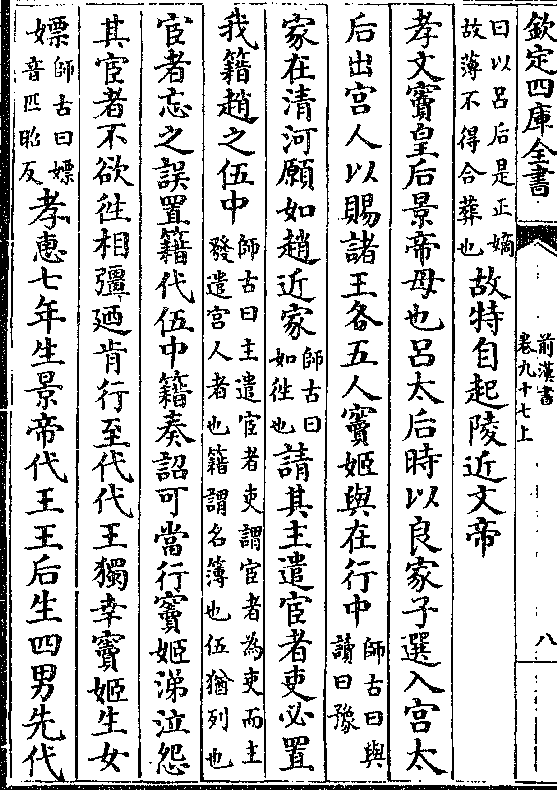 欽定四庫全書
前漢書
卷九十七上
八
曰以呂后是正嫡
故薄不得合葬也
故特自起陵近文帝
孝文竇皇后景帝母也呂太后時以良家子選入宮太
后出宮人以賜諸王各五人竇姬與在行中
師古曰與
讀曰豫
家在清河願如趙近家
師古曰
如徃也
請其主遣宦者吏必置
我籍趙之伍中
師古曰主遣宦者吏謂宦者為吏而主
發遣宮人者也籍謂名簿也伍猶列也
宦者忘之誤置籍代伍中籍奏詔可當行竇姬涕泣怨
其宦者不欲徃相彊廼肯行至代代王獨幸竇姬生女
嫖
師古曰嫖
音匹昭反
孝惠七年生景帝代王王后生四男先代